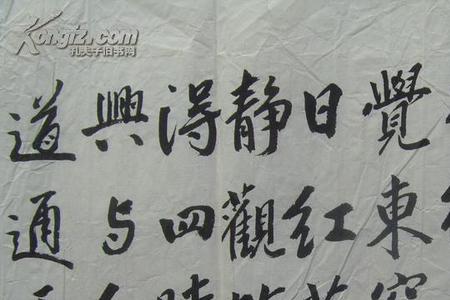 Kongfz.com
孔夫子旧书网
覺東
日红
静觀
得四時
興与
道通